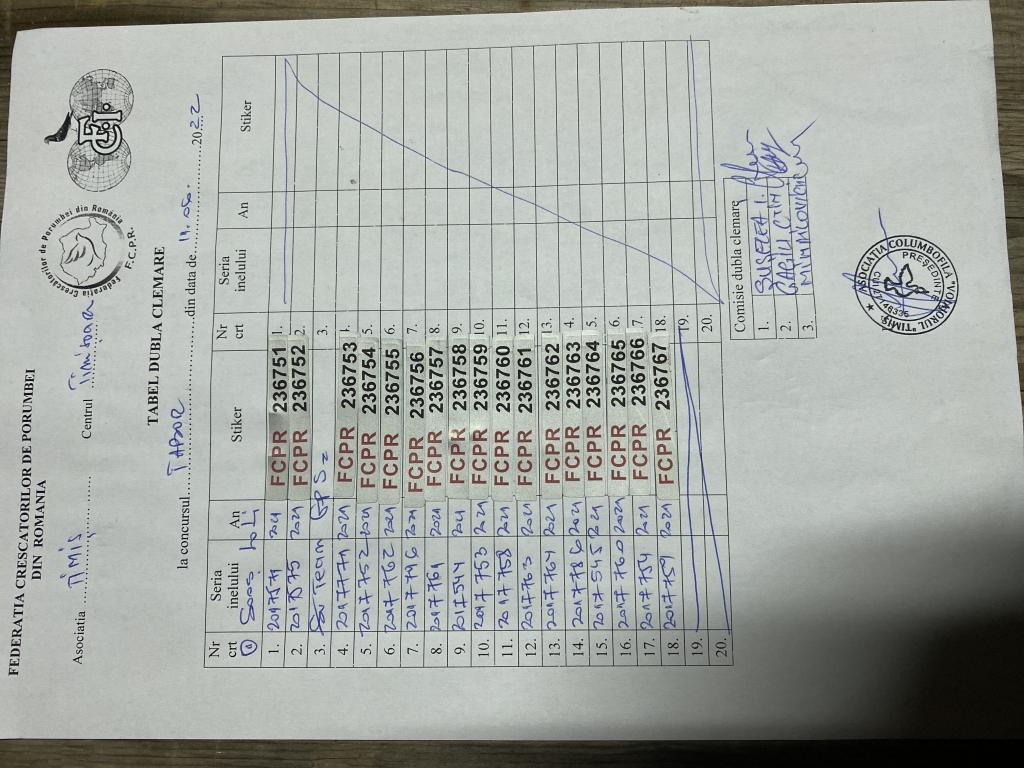 FEDERATIA CRESCATORILOR DE PORUMBEI
DIN ROMANIA
Federatia Crescatorilor de Porumbei din România
F.C.P.R.
F.C.I.
Asociatia TIMIS Centrul Timisoara
TABEL DUBLA CLEMARE
la concursul TABOR din data de 11.06. 2022
Nr crt Seria inelului An Stiker Nr crt Seria inelului An Stiker
1 Soos Loti
1. 2017571 2021 FCPR 236751 1.
2. 2017575 2021 FCPR 236752 2.
3. Team GPS 2 3.
4. 2017771 2021 FCPR 236753 4.
5. 2017752 2021 FCPR 236754 5.
6. 2017762 2021 FCPR 236755 6.
7. 2017796 2021 FCPR 236756 7.
8. 2017761 2021 FCPR 236757 8.
9. 2017544 2021 FCPR 236758 9.
10. 2017753 2021 FCPR 236759 10.
11. 2017758 2021 FCPR 236760 11.
12. 2017763 2021 FCPR 236761 12.
13. 2017764 2021 FCPR 236762 13.
14. 2017786 2021 FCPR 236763 4.
15. 2017545 2021 FCPR 236764 5.
16. 2017760 2021 FCPR 236765 6.
17. 2017754 2021 FCPR 236766 7.
18. 2017759 2021 FCPR 236767 18.
19. 19.
20. 20.
Comisie dubla clemare
1. BUSETEA I.
2. CTIN
3.
ASOCIATIA COLUMBOFILA "VOIAJORUL" TIMIS
PRESEDINTE